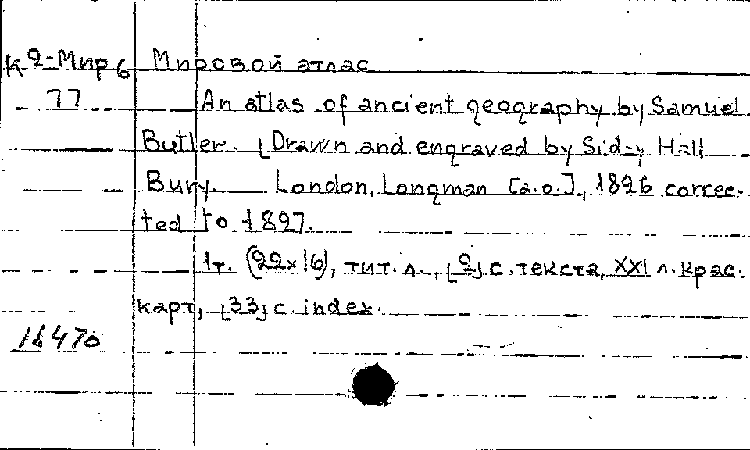 К 2-Мир 6
77
Мировой атлас
An atlas of ancient geography by Samuel
Butler. [Drawn and engraved by Sidny Hall
Bury. London, Longman [a.o.], 1826 correc-
ted to 1827.
1т. (22x16), тит. л., [2] с. текста, XXI л. крас.
карт, [33] с. index.
16470